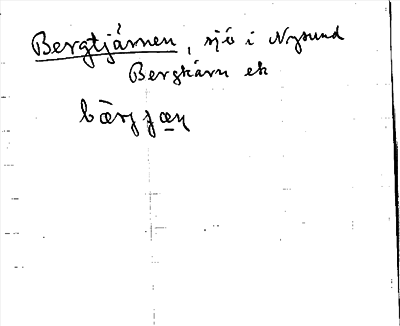 Bergtjärnen, sjö i Nysund
Bergkärn ek
bǣrjɟæn̠